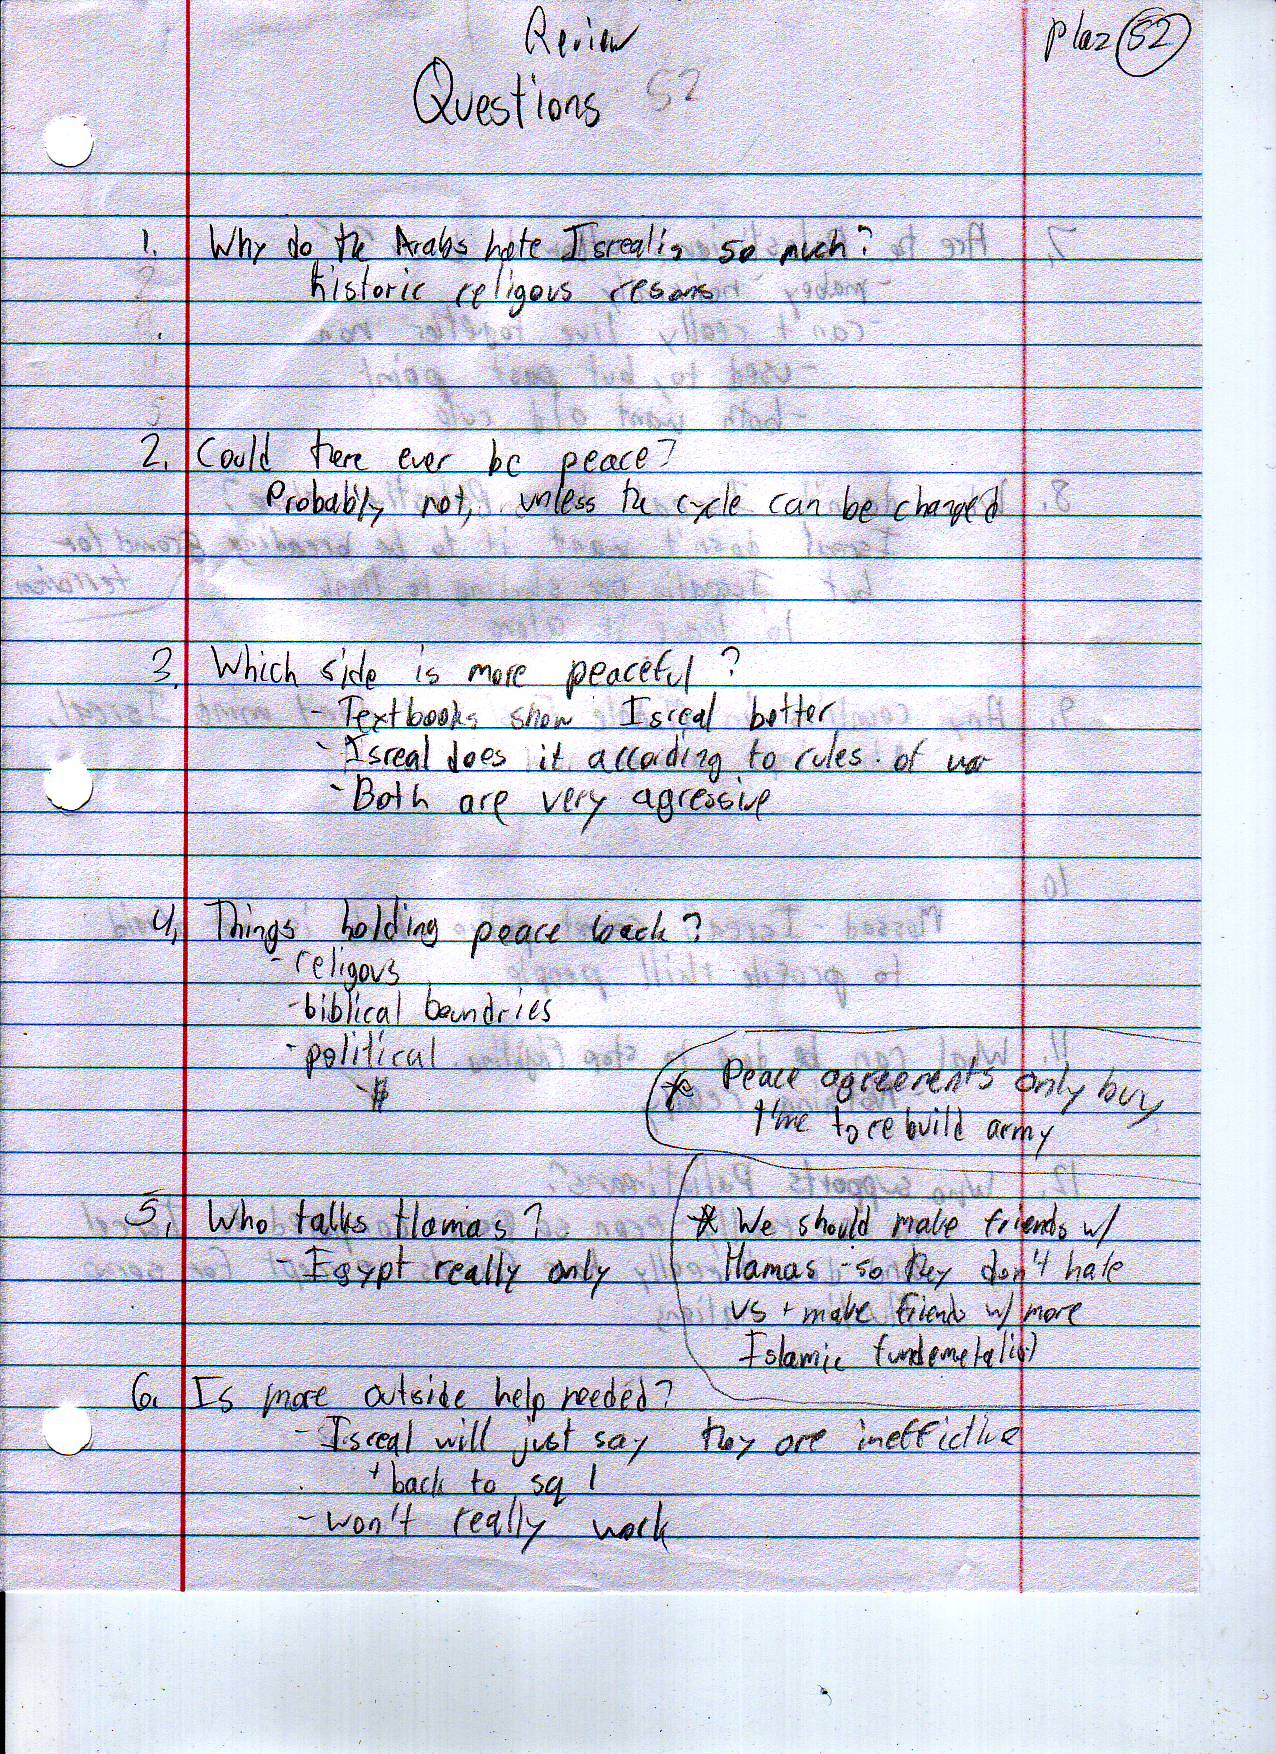 Review
Plaz 52
Questions 52
1. Why do the Arabs hate Isrealis so much?
historic religous resons
2. Could there ever be peace?
Probably not, unless the cycle can be changed
3. Which side is more peaceful?
- Textbooks show Isreal better
- Isreal does it according to rules of war
- Both are very agressive
4. Things holding peace back?
- religous
- biblical boundries
- political
- $
* Peace agreements only buy
time to rebuild army
5. Who talks Hamas?
- Egypt really only
* We should make friends w/
Hamas - so they don't hate
us + make friends w/ more
Islamic
6. Is more outside help needed?
- Isreal will just say they are ineffictive
+ back to sq 1
- won't really work